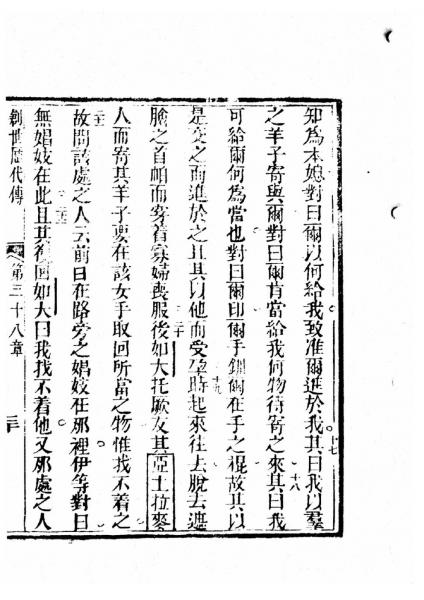 知爲本媳對曰爾以何給我致准爾進於我其曰我以羣 十七
之羊子寄與爾對曰爾肯當給我何物待寄之來其曰我 十八
可給爾何爲當也對曰爾印爾手鐲與在手之棍故其以
是交之而進於之且其以他而受孕時起來往去脫去遮 十九
臉之首帕而穿着寡婦喪服後如大托厥友其亞土拉麥 二十
人而寄其羊子要在該女手取回所當之物惟找不着之
故問該處之人云前日在路旁之娼妓在那裡伊等對曰 二一
無娼妓在此且其徃回如大曰我找不着他又那處之人 二二
創世歷代傳 第三十八章